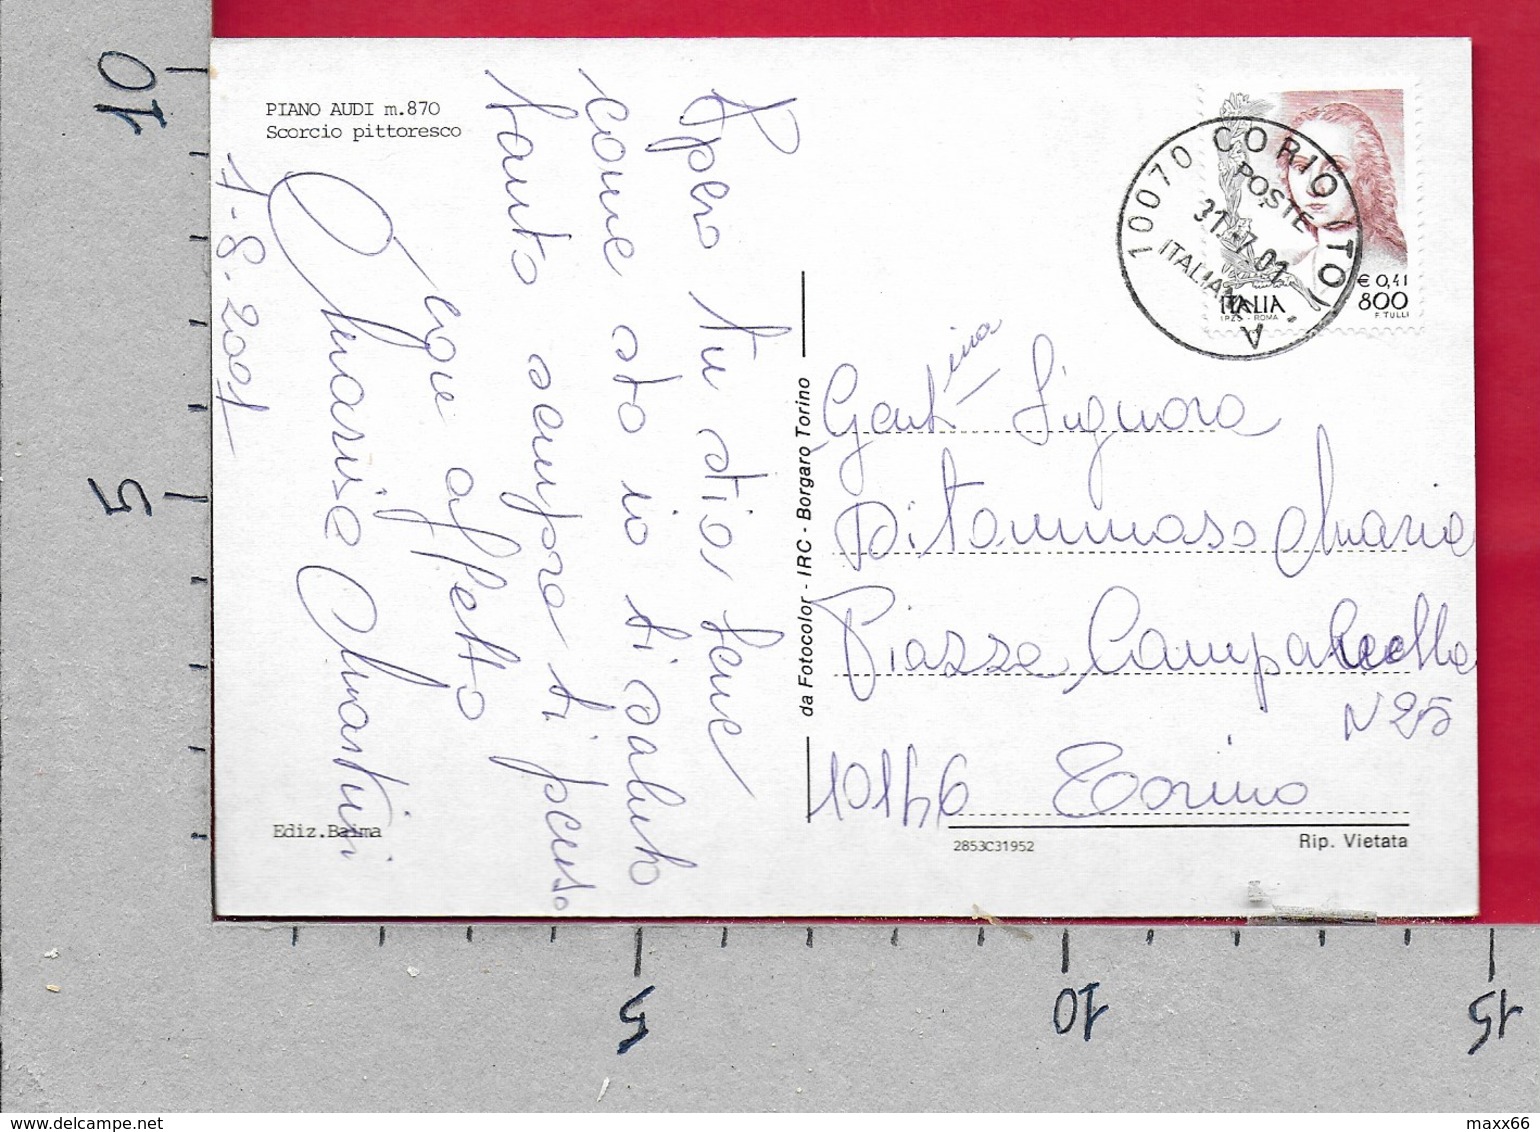 PIANO AUDI m.870
Scorcio pittoresco
Spero tu stia bene
come sto io ti saluto
tanto sempre ti penso
con affetto
Marisa Martini
1-8-2001
Ediz.Baima
da Fotocolor - IRC - Borgaro Torino
10070 CORIO (TO)
POSTE
31.-7.01
ITALIANE
A
ITALIA
I.P.Z.S. - ROMA
€ 0,41
800
F. TULLI
Gent.ma Signora
Ditommaso Maria
Piazza
N 25
10146 Torino
2853C31952
Rip. Vietata
10
5
5
10
15
delcampe.net
maxx66